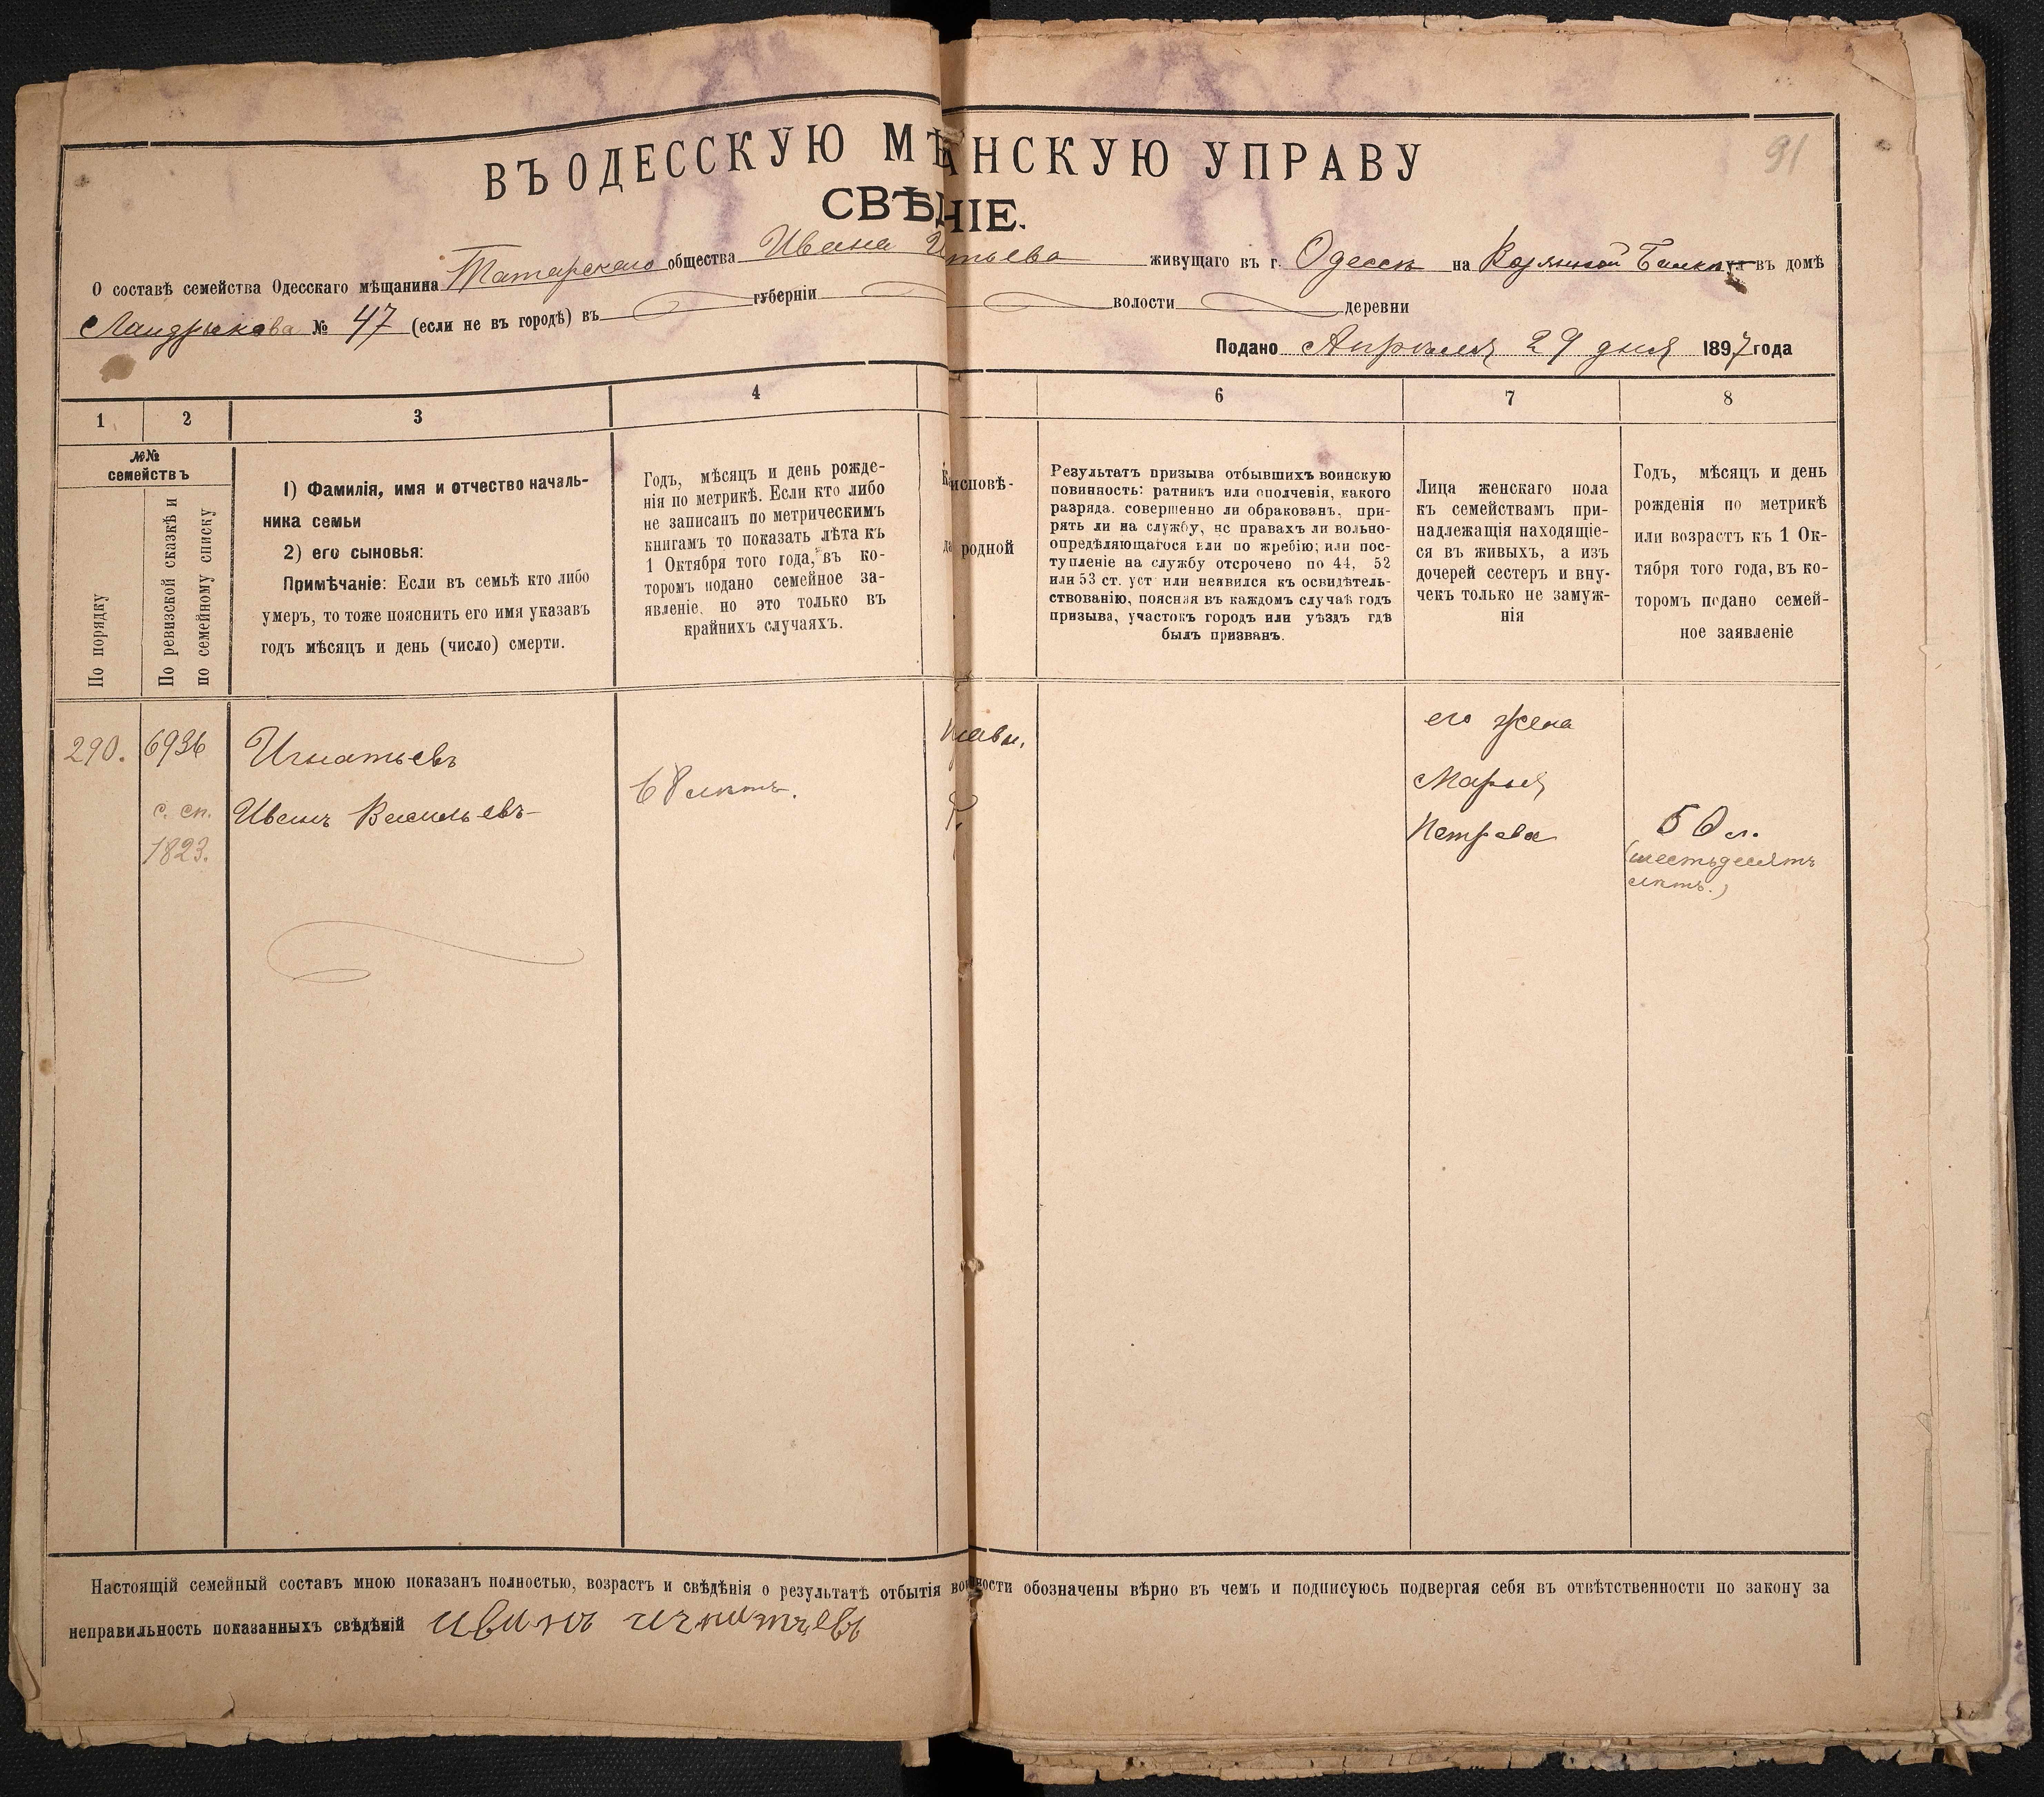 91
ВЪ ОДЕССКУЮ МѢ АНСКУЮ УПРАВУ
СВѢД НІЕ.
О составѣ семейства Одесскаго мѣщанина Татарскаго общества Ивана И тьева живущаго въ г. Одессѣ на Водяной Балкѣ ул въ домѣ
Ландрыкова № 47 (если не въ городѣ) въ губерніи волости деревни
Подано Апрѣля 29 дня 1897 года
1 2 3 4 6 7 8
№№ семействъ
По порядку
По ревизской сказкѣ и по семейному списку
1) Фамилія, имя и отчество началь-
ника семьи
2) его сыновья:
Примѣчаніе: Если въ семьѣ кто либо
умеръ, то тоже пояснить его имя указавъ
годъ мѣсяцъ и день (число) смерти.
Годъ, мѣсяцъ и день рожде-
нія по метрикѣ. Если кто либо
не записанъ по метрическимъ
книгамъ то показать лѣта къ
1 Октября того года, въ ко-
торомъ подано семейное за-
явленіе, но это только въ
крайнихъ случаяхъ.
исповѣ-
родной
Результатъ призыва отбывшихъ воинскую
повинность: ратникъ или ополченія, какого
разряда. совершенно ли обракованъ, при-
рять ли на службу, нс правахъ ли вольно-
опредѣляющагося или по жребію; или пос-
тупленіе на службу отсрочено по 44, 52
или 53 ст. уст или неявился къ освидѣтель-
ствованію, поясняя въ каждомъ случаѣ годъ
призыва, участокъ городъ или уѣздъ гдѣ
былъ призванъ.
Лица женскаго пола
къ семействамъ при-
надлежащія находящіе-
ся въ живыхъ, а изъ
дочерей сестеръ и вну-
чекъ только не замуж-
нія
Годъ, мѣсяцъ и день
рожденія по метрикѣ
или возрастъ къ 1 Ок-
тября того года, въ ко-
торомъ подано семей-
ное заявленіе
290. 6936 Игнатьевъ
с. сп. Иванъ Васильевъ 68 лѣтъ.
1823.
его жена
Марья
Петрова 60 л.
(шестьдесятъ
лѣтъ.)
Настоящій семейный составъ мною показанъ полностью, возрастъ и свѣдѣнія о результатѣ отбытія вои ности обозначены вѣрно въ чемъ и подписуюсь подвергая себя въ отвѣтственности по закону за
неправильность показанныхъ свѣдѣній иванъ игнатьевъ